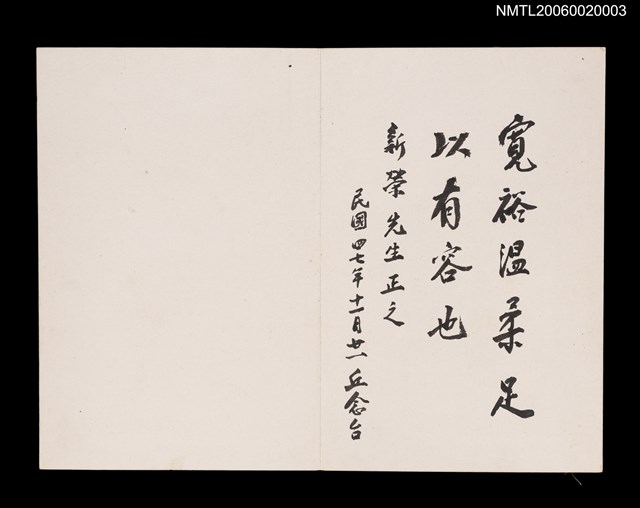 NMTL20060020003
寬裕溫柔足
以有容也
新榮先生正之
民國四七年十一月廿一 丘念台